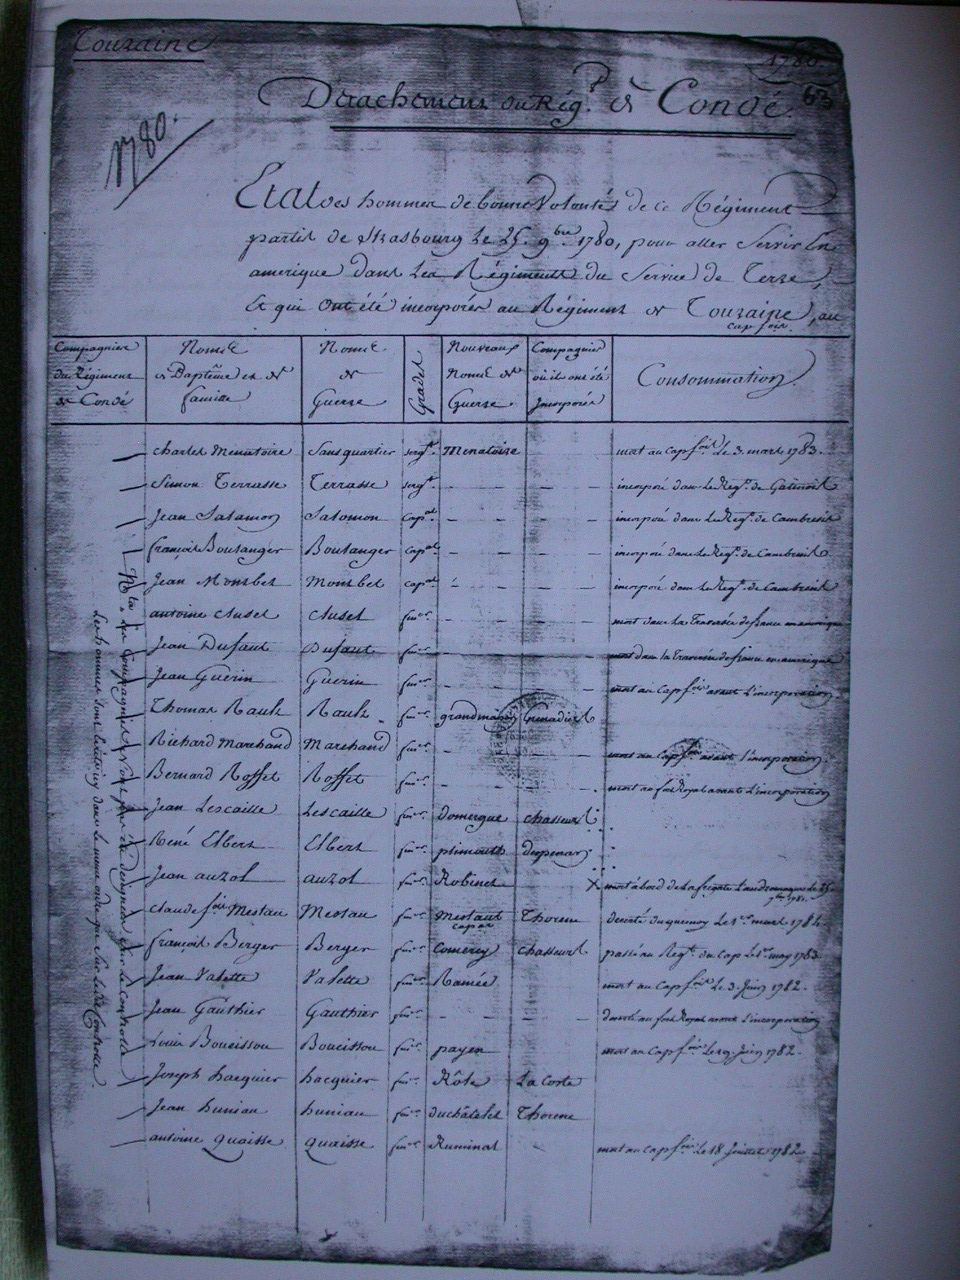 Touraine
1780.
63
Detachement du Rég.t de Condé.
1780.
Etat des hommes de bonne Volonté de ce Régiment
partis de Strasbourg Le 25. 9bre 1780, pour aller Servir En
amerique dans Les Régiments du Service de Terre,
Et qui Ont été incorporés au Régiment de Touraine, au
cap fois.
Compagnies du Régiment de Condé
Noms de Baptême et de famille
Noms de Guerre
Grades
Nouveaux Noms de Guerre
Compagnies où ils ont été Incorporés
Consommation.
charles Menutoire Sansquartier serg.t Menatoire mort au Cap fois Le 3. mars 1783.
Simon Terrasse Terrasse serg.t - - incorporé dans Le Reg.t de Gatinois
Jean Salamon Salomon cap.al - - incorporé dans Le Reg.t de Cambresis
françois Boulanger Boulanger cap.al - - incorporé dans Le Reg.t de Cambresis
Jean Monsbel Monsbel cap.al - - incorporé dans Le Reg.t de Cambresis
antoine Clusel Clusel fus.er - - mort dans La Traversée de france en amerique
Jean Dufaut Dufaut fus.er - - mort dans la Traversée de france en amerique
Jean Guerin Guerin fus.er - - mort au Cap fois avant L'incorporation
Thomas Rault Rault fus.er grandmaison Grenadiers
Richard Marchand Marchand fus.er - - mort au Cap fois avant L'incorporation.
Bernard Roffet Roffet fus.er - - mort au fort Royal avant L'incorporation
Jean Lescaille Lescaille fus.er Domergue chasseurs
René Elbert Elbert fus.er plimouth
Jean auzol auzol fus.er Robinet X mort à bord de La fregate L'andromaque Le 25 7bre 1781.
Claude fois Mestau Mestau fus.er Mestaut Thorene deserté Le 1er mars 1784
françois Berger Berger fus.er Comercy chasseurs passé au Reg.t du Cap Le 1er may 1783
Jean Valette Valette fus.er Ramée mort au Cap fois Le 3. Juin 1782.
Jean Gauthier Gauthier fus.er - - deserté au fort Royal avant L'incorporation
Louis Boucissou Boucissou fus.er payen mort au Cap fois Le 19. Juin 1782.
Joseph hacquier hacquier fus.er Rôle La Coste
Jean huniau huniau fus.er duchâtelet Thorene
antoine Quaisse Quaisse fus.er Ruminat mort au cap fois Le 18 Juillet 1782